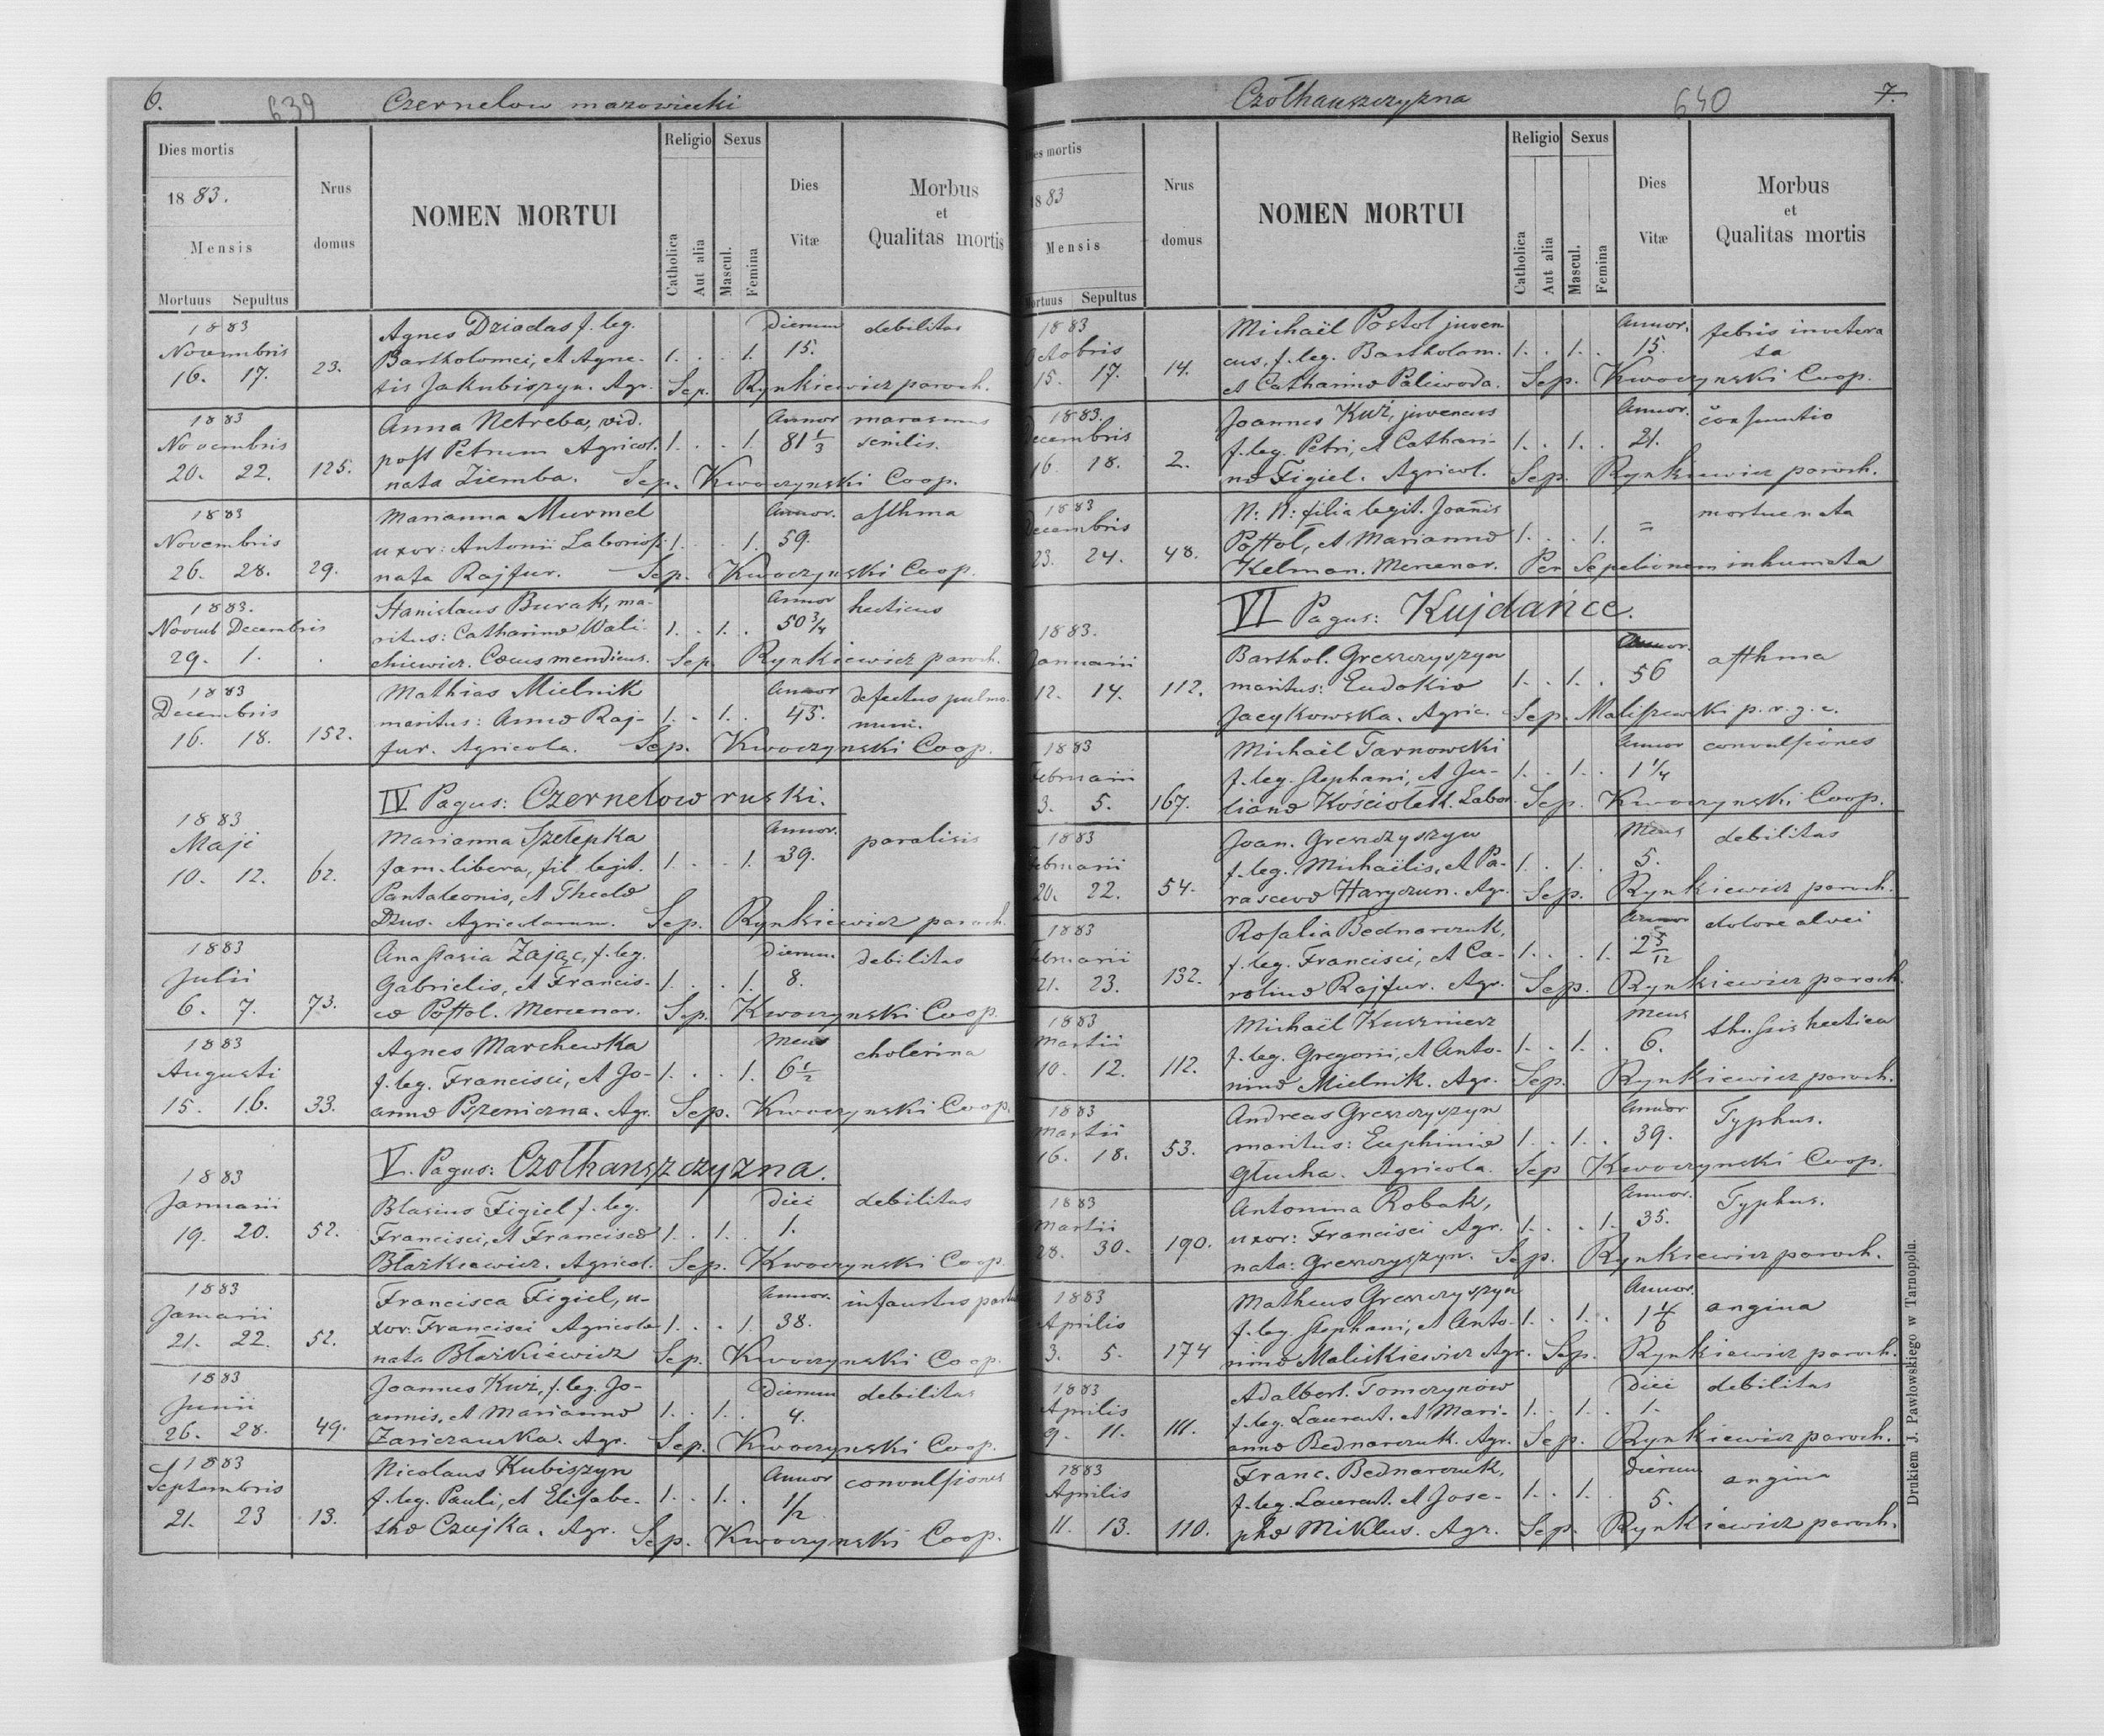 6.
639
Czernelow mazowiecki
Dies mortis
1883.
Mensis
Mortuus Sepultus
Nrus
domus
NOMEN MORTUI
Religio
Catholica
Aut alia
Sexus
Mascul.
Femina
Dies
Vitæ
Morbus
et
Qualitas mortis
1883
Novembris
16. 17.
23.
Agnes Dziadas f. leg.
Bartholomei, et Agne-
tis Jakubiszyn. Agr.
1. . . 1.
Dierum
15.
debilitas
Sep. Rynkiewicz paroch.
1883
Novembris
20. 22.
125.
Anna Netreba, vid.
post Petrum Agricol.
nata Ziemba.
1. . . 1.
Annor
81 1/3
marasmus
senilis.
Sep. Kwoczynski Coop.
1883
Novembris
26. 28.
29.
Marianna Murmel
uxor: Antonii Laborios.
nata Rajfur.
1. . . 1.
Annor.
59.
asthma
Sep. Kwoczynski Coop.
1883.
Novemb Decembris
29. 1.
.
Stanislaus Burak, ma-
ritus: Catharinæ Wali-
chiewicz. Cæcus mendicus.
1. . 1. .
Annor
50 3/4
hecticus
Sep. Rynkiewicz paroch.
1883
Decembris
16. 18.
152.
Mathias Mielnik
maritus: Annæ Raj-
fur. Agricola.
1. . 1. .
Annor
45.
defectus pulmo-
num.
Sep. Kwoczynski Coop.
IV Pagus: Czernelow ruski.
1883
Maji
10. 12.
62.
Marianna Szelepka
fam. libera, fil. legit.
Pantaleonis, et Theclæ
Dzus. Agricolarum.
1. . . 1.
Annor.
39.
paralisis
Sep. Rynkiewicz paroch.
1883
Julii
6. 7.
73.
Anastasia Zając, f. leg.
Gabrielis, et Francis-
cæ Postol. Mercenar.
1. . . 1.
Dierum
8.
debilitas
Sep. Kwoczynski Coop.
1883
Augusti
15. 16.
33.
Agnes Marchewka
f. leg. Francisci, et Jo-
annæ Pszeniczna. Agr.
1. . . 1.
Mens
6 1/2
cholerina
Sep. Kwoczynski Coop.
V. Pagus: Czołhanszczyzna.
1883
Januarii
19. 20.
52.
Blasius Figiel f. leg.
Francisci, et Franciscæ
Błażkiewicz. Agricol.
1. . 1. .
Diei
1.
debilitas
Sep. Kwoczynski Coop.
1883
Januarii
21. 22.
52.
Francisca Figiel, u-
xor: Francisci Agricolæ
nata Błażkiewicz
1. . . 1.
Annor.
38.
infaustus partus
Sep. Kwoczynski Coop.
1883
Junii
26. 28.
49.
Joannes Kuź, f. leg. Jo-
annis, et Mariannæ
Zariczańska. Agr.
1. . 1. .
Dierum
4.
debilitas
Sep. Kwoczynski Coop.
1883
Septembris
21. 23
13.
Nicolaus Kubiszyn
f. leg. Pauli, et Elisabe-
thæ Czujka. Agr.
1. . 1. .
Annor
1/2
convulsiones
Sep. Kwoczynski Coop.
Czołhanszczyzna
640
7.
Dies mortis
1883
Mensis
Mortuus Sepultus
Nrus
domus
NOMEN MORTUI
Religio
Catholica
Aut alia
Sexus
Mascul.
Femina
Dies
Vitæ
Morbus
et
Qualitas mortis
1883
Octobris
15. 17.
14.
Michaël Postol juven
cus, f. leg. Bartholom.
et Catharinæ Paliwoda.
1. . 1. .
Annor.
15.
febris invetera
ta
Sep. Kwoczynski Coop.
1883.
Decembris
16. 18.
2.
Joannes Kuź, juvencus
f. leg. Petri, et Cathari-
næ Figiel. Agricol.
1. . 1. .
Annor.
21.
consumtio
Sep. Rynkiewicz paroch.
1883
Decembris
23. 24.
48.
N: N: filia legit. Joannis
Postol, et Mariannæ
Kelman. Mercenar.
1. . . 1.
=
mortue nata
Per Sepelionem inhumata
VI Pagus: Kujdańce.
1883.
Januarii
12. 14.
112.
Barthol. Greszczyszyn
maritus: Eudokiæ
Jacykowska. Agric.
1. . 1. .
Annor.
56
asthma
Sep. Maliszewski p. r. g. c.
1883
Februarii
3. 5.
167.
Michaël Tarnowski
f. leg. Stephani, et Ju-
lianæ Kościołek. Labor.
1. . 1. .
Annor
1 1/4
convulsiones
Sep. Kwoczynski Coop.
1883
Februarii
20. 22.
54.
Joan. Greszczyszyn
f. leg. Michaëlis, et Pa-
rascevæ Haryczun. Agr.
1. . 1. .
Mens
5.
debilitas
Sep. Rynkiewicz paroch.
1883
Februarii
21. 23.
132.
Rosalia Bednarczuk,
f. leg. Francisci, et Ca-
rolinæ Rajfur. Agr.
1. . . 1.
Annor
2 5/12
dolore alvei
Sep. Rynkiewicz paroch.
1883
Martii
10. 12.
112.
Michaël Kuszniesz
f. leg. Gregorii, et Anto-
ninæ Mielnik. Agr.
1. . 1. .
Mens
6.
thisis hectica
Sep. Rynkiewicz paroch.
1883
Martii
16. 18.
53.
Andreas Greszczyszyn
maritus: Euphimiæ
Głucha. Agricola.
1. . 1. .
Annor
39.
Typhus.
Sep Kwoczynski Coop.
1883
Martii
28. 30.
190.
Antonina Robak,
uxor: Francisci Agr.
nata: Greszczyszyn.
1. . . 1.
Annor.
35.
Typhus.
Sep. Rynkiewicz paroch.
1883
Aprilis
3. 5.
174
Matheus Greszczyszyn
f. leg. Stephani, et Anto-
ninæ Maliskiewicz Agr.
1. . 1. .
Annor.
angina
Sep. Rynkiewicz paroch.
1883
Aprilis
9. 11.
111.
Adalbert. Tomczynów
f. leg. Laurent. et Mari-
annæ Bednarczuk. Agr.
1. . 1. .
Diei
1.
debilitas
Sep. Rynkiewicz paroch.
1883
Aprilis
11. 13.
110.
Franc. Bednarczuk,
f. leg. Laurent. et Jose-
phæ Miklus. Agr.
1. . 1.
Dierum
5.
angina
Sep. Rynkiewicz paroch.
Drukiem J. Pawłowskiego w Tarnopolu.